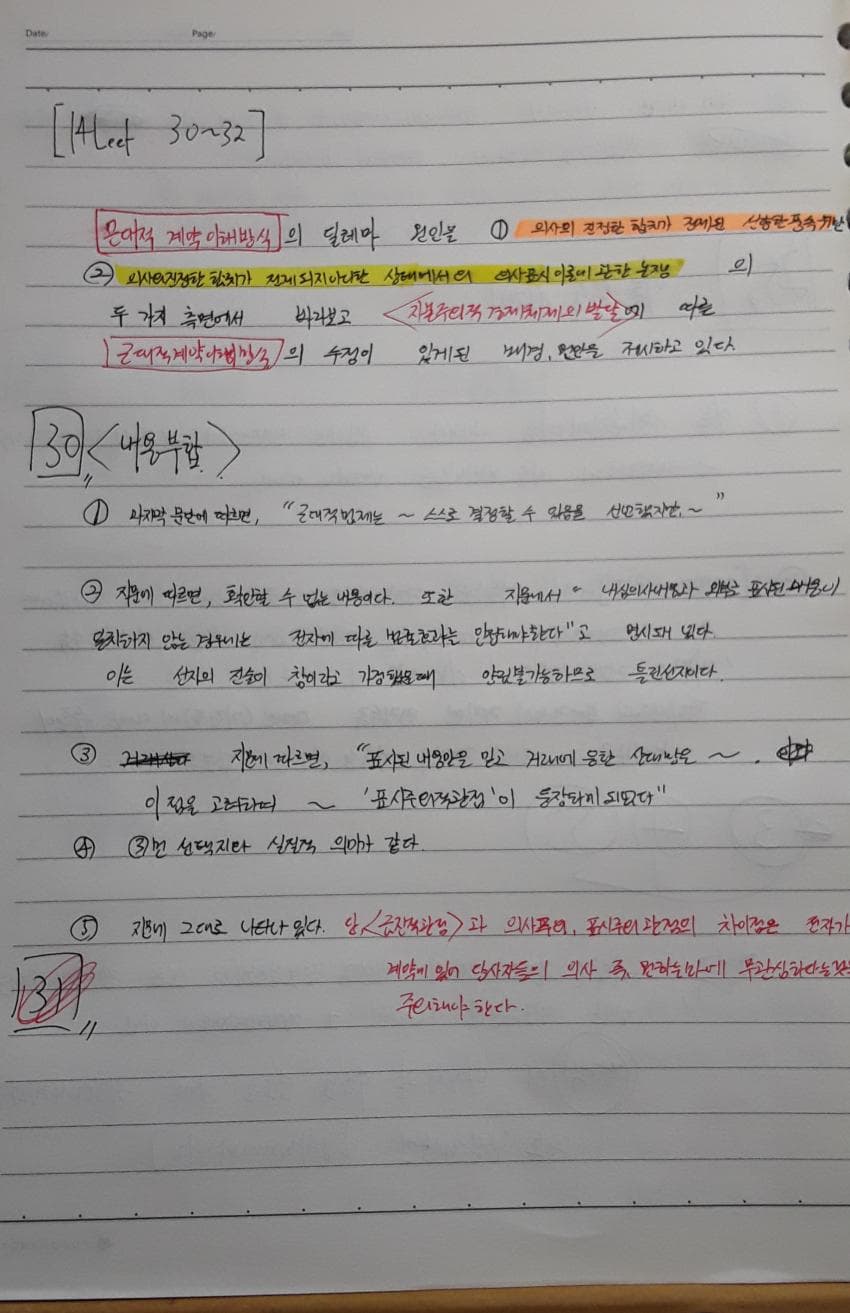 Date/ Page/
[14Leet 30~32]
근대적 계약이해방식의 딜레마 원인을 ① 의사의 진정한 합치가 전제된
② 의사의 진정한 합치가 전제되지 아니한 상태에서의 의사표시 이론에 관한 논쟁 의
두 가지 측면에서 바라보고 <자본주의적 경제체제의 발달>에 따른
근대적계약이해방식의 수정이 있게된 배경, 원인을 제시하고 있다.
30 <내용부합>
① 마지막 문단에 따르면, "근대적법제는 ~ 스스로 결정할 수 있음을 선언했지만, ~"
② 지문에 따르면, 확인할 수 없는 내용이다. 또한 지문에서 " 내심의사내용과 외부로 표시된
일치하지 않는 경우에는 전자에 따른 법률효과는 인정돼야한다"고 명시돼 있다.
이는 선지의 진술이 참이라고 가정했을때 양립불가능하므로 틀린선지이다.
③ 지문에 따르면, "표시된 내용만을 믿고 거래에 응한 상대방은 ~ .
이 점을 고려하여 ~ '표시주의적관점'이 등장하게 되었다"
④ ③번 선택지와 실질적 의미가 같다.
⑤ 지문에 그대로 나타나 있다. 단, <급진적관점>과 의사주의, 표시주의 관점의 차이점은 전자가
계약에 있어 당사자들의 의사 즉, 원하는바에 무관심하다는
주의해야 한다.
31